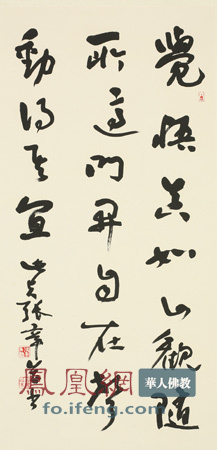 覺悟真如止觀隨
所適門開自在舉
動得其宜 張
鳳凰網 華人佛教
fo.ifeng.com